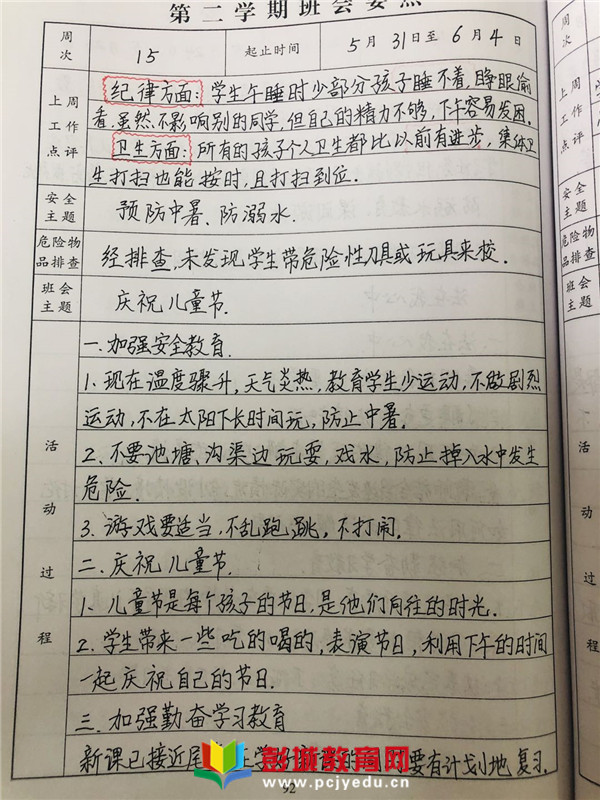 第二学期班会要点
周次 15 起止时间 5月31日至6月4日
上周工作点评
纪律方面：学生午睡时少部分孩子睡不着，睁眼偷
看.虽然不影响别的同学，但自己的精力不够，下午容易发困.
卫生方面：所有的孩子个人卫生都比以前有进步，集体卫
生打扫也能按时，且打扫到位.
安全主题 预防中暑、防溺水.
危险物品排查 经排查，未发现学生带危险性刀具或玩具来校.
班会主题 庆祝儿童节.
活动过程
一.加强安全教育.
1.现在温度骤升，天气炎热，教育学生少运动，不做剧烈
运动，不在太阳下长时间玩，防止中暑.
2.不要池塘、沟渠边玩耍，戏水，防止掉入水中发生
危险.
3.游戏要适当，不乱跑，跳，不打闹.
二.庆祝儿童节.
1.儿童节是每个孩子的节日，是他们向往的时光.
2.学生带来一些吃的喝的，表演节目，利用下午的时间
一起庆祝自己的节日.
三.加强勤奋学习教育
新课已接近尾 上 要有计划地复习.
彭城教育网
www.pcjyedu.cn
92
周次
上周工作点评
安全主题
危险物品排查
班会主题
活动过程